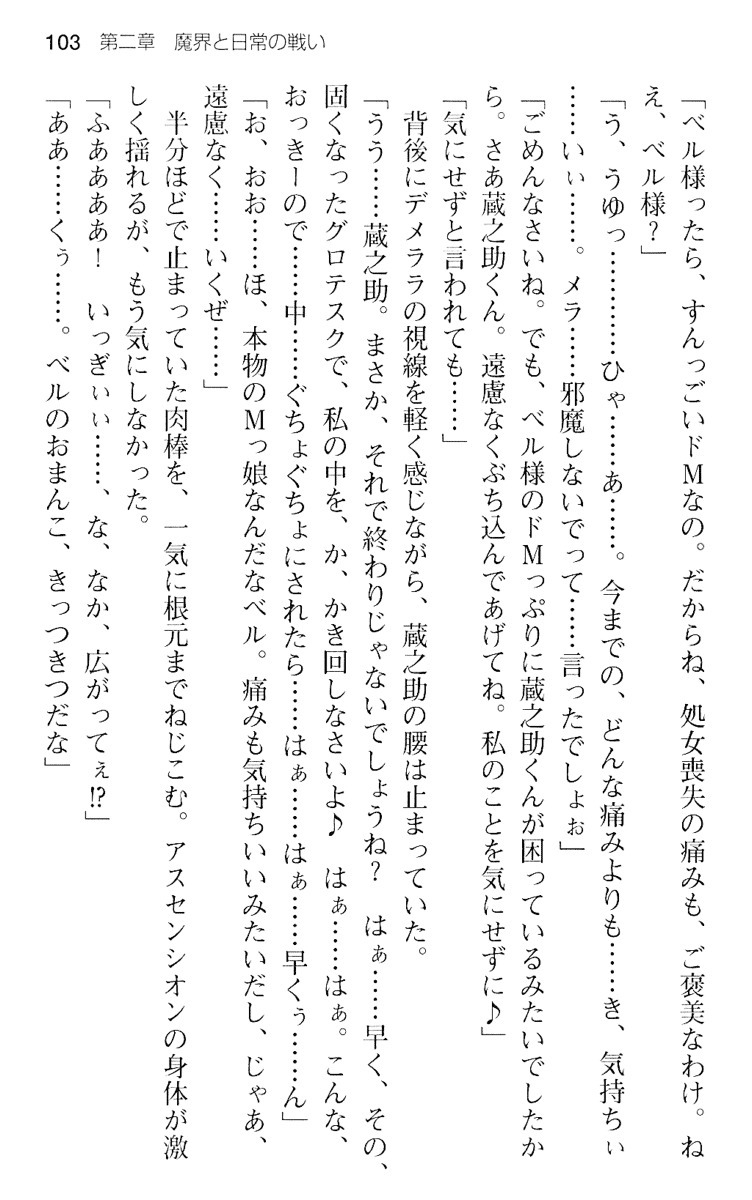 103 第二章 魔界と日常の戦い
「ベル様ったら、すんっごいドMなの。だからね、処女喪失の痛みも、ご褒美なわけ。ね
え、ベル様？」
「う、うゆっ…………ひゃ……あ……。今までの、どんな痛みよりも……き、気持ちぃ
……いぃ……。メラ……邪魔しないでって……言ったでしょぉ」
「ごめんなさいね。でも、ベル様のドMっぷりに蔵之助くんが困っているみたいでしたか
ら。さあ蔵之助くん。遠慮なくぶち込んであげてね。私のことを気にせずに♪」
「気にせずと言われても……」
背後にデメララの視線を軽く感じながら、蔵之助の腰は止まっていた。
「うう……蔵之助。まさか、それで終わりじゃないでしょうね？　はぁ……早く、その、
固くなったグロテスクで、私の中を、か、かき回しなさいよ♪　はぁ……はぁ。こんな、
おっきーので……中……ぐちょぐちょにされたら……はぁ……はぁ……早くぅ……ん」
「お、おお……ほ、本物のMっ娘なんだなベル。痛みも気持ちいいみたいだし、じゃあ、
遠慮なく……いくぜ……」
半分ほどで止まっていた肉棒を、一気に根元までねじこむ。アスセンシオンの身体が激
しく揺れるが、もう気にしなかった。
「ふああああ！　いっぎぃぃ……、な、なか、広がってぇ!?」
「ああ……くぅ……。ベルのおまんこ、きっつきつだな」